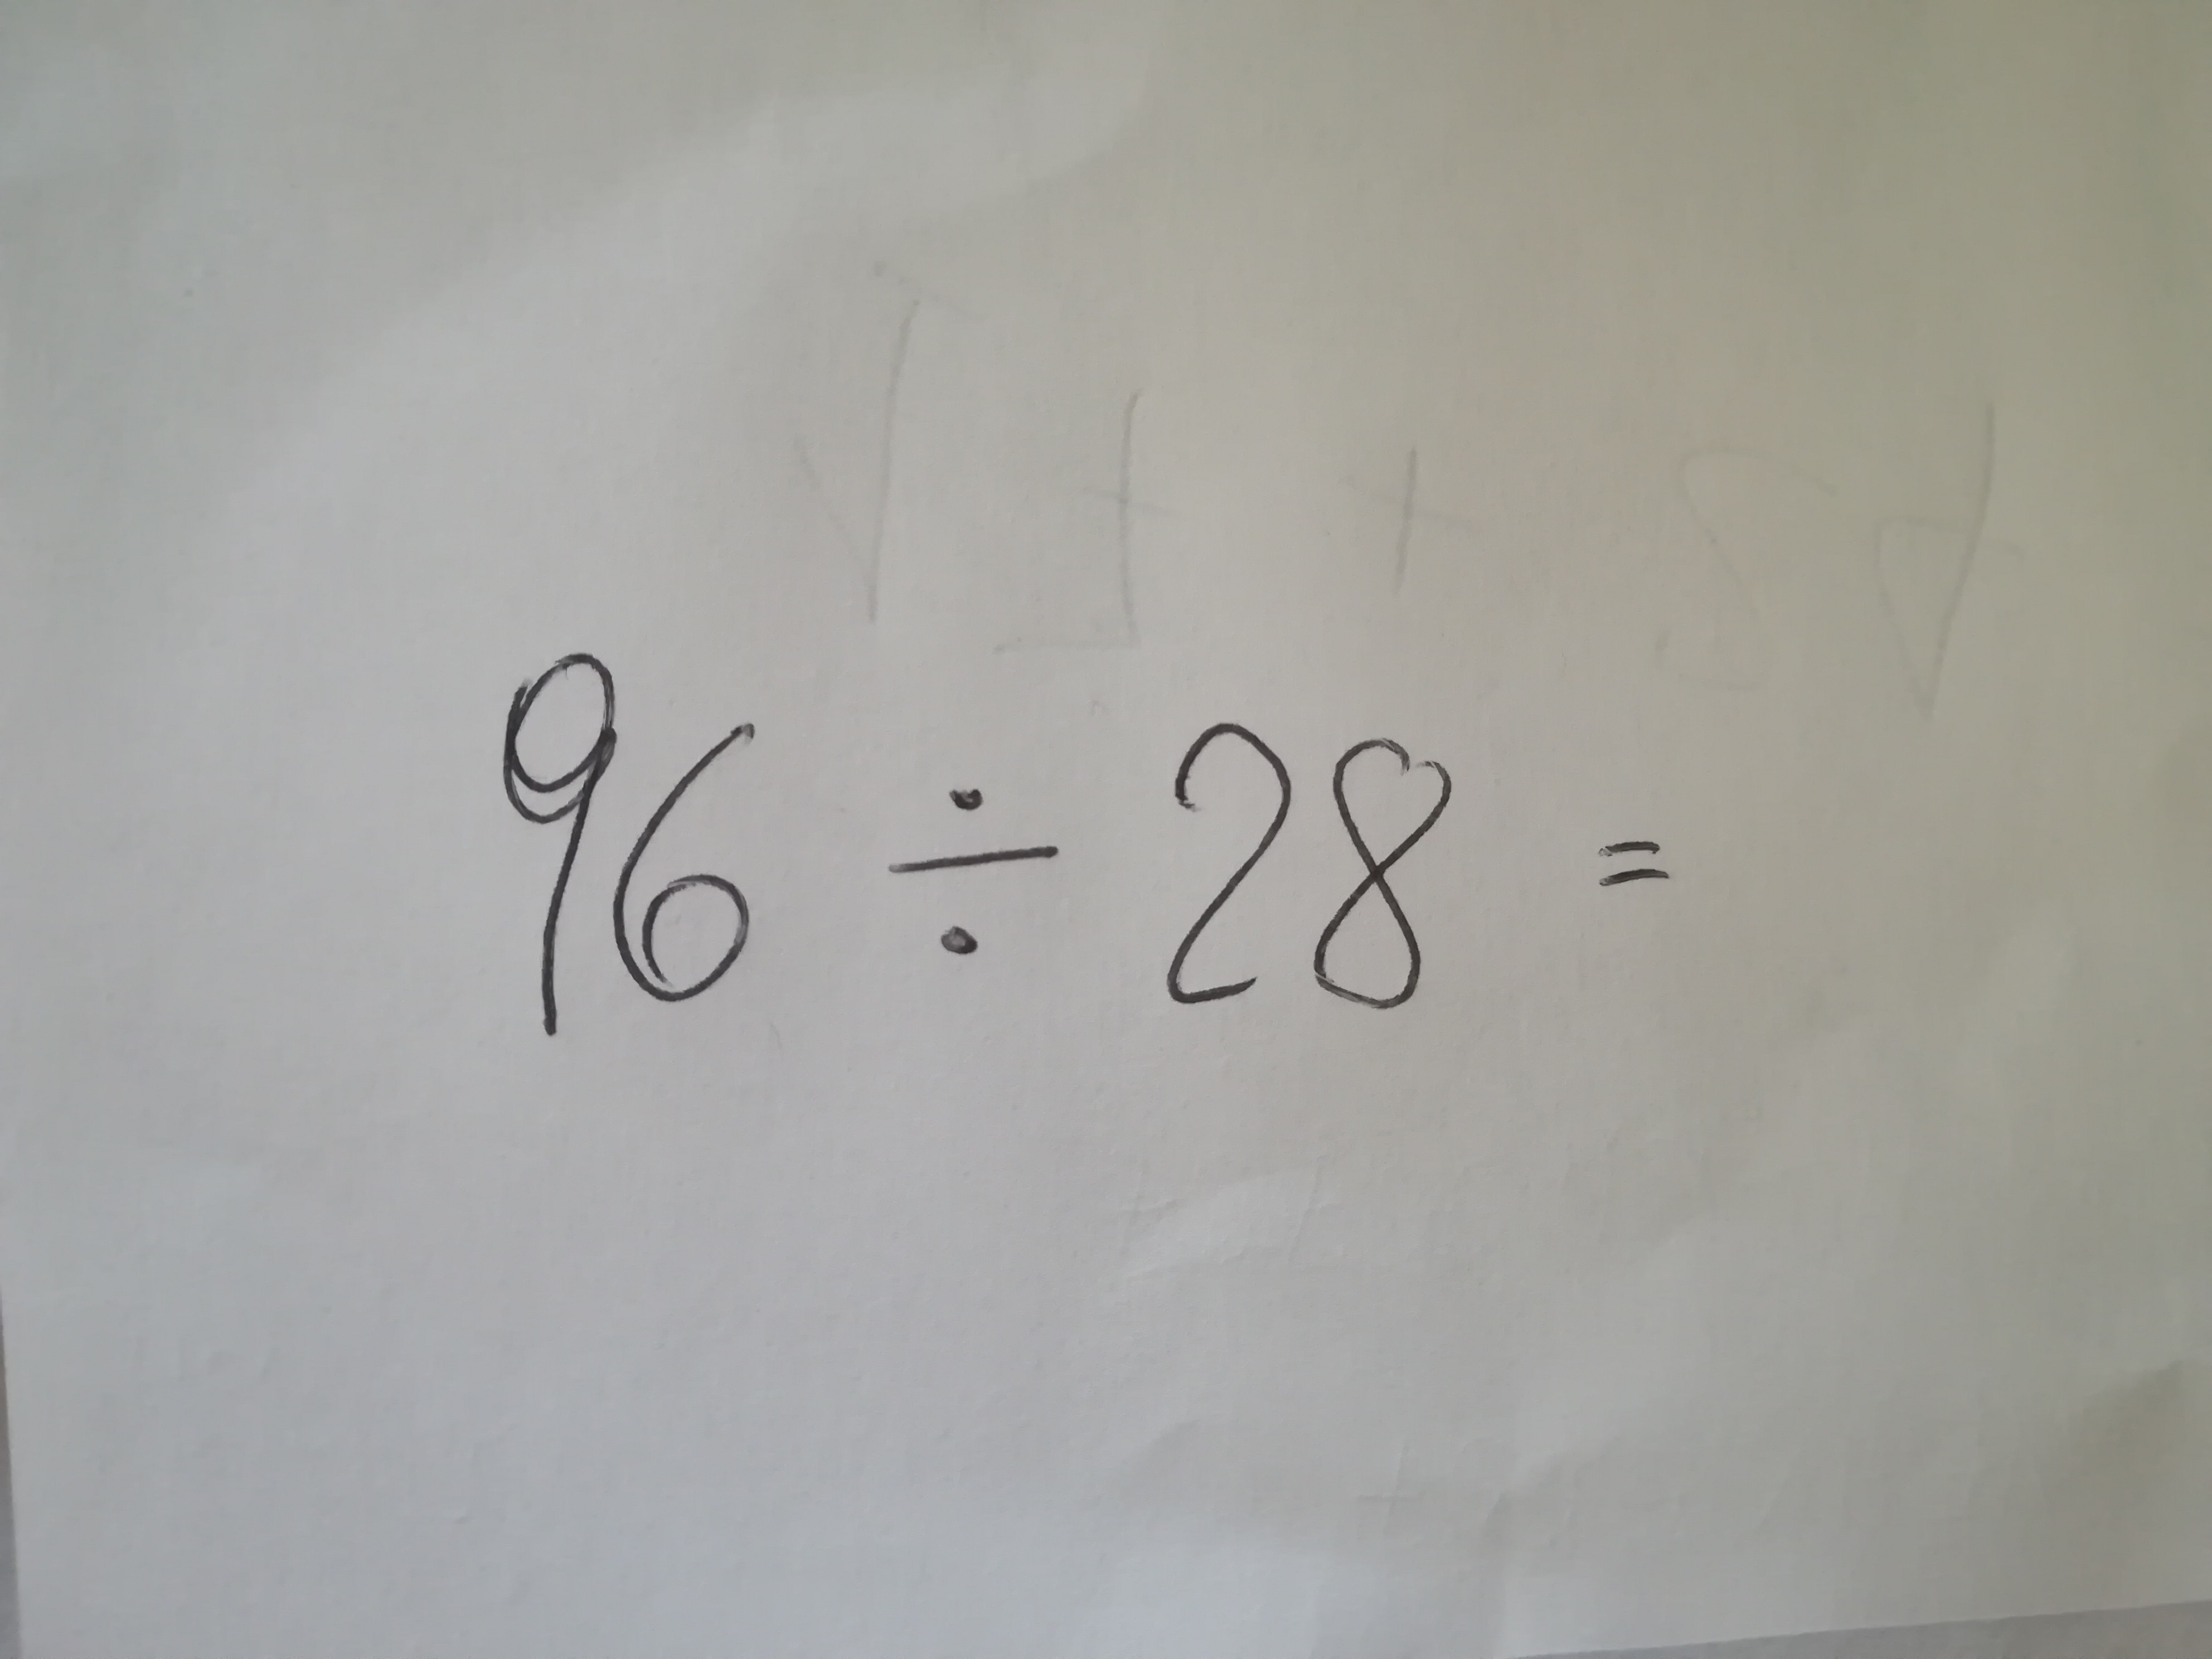 96 ÷ 28 =